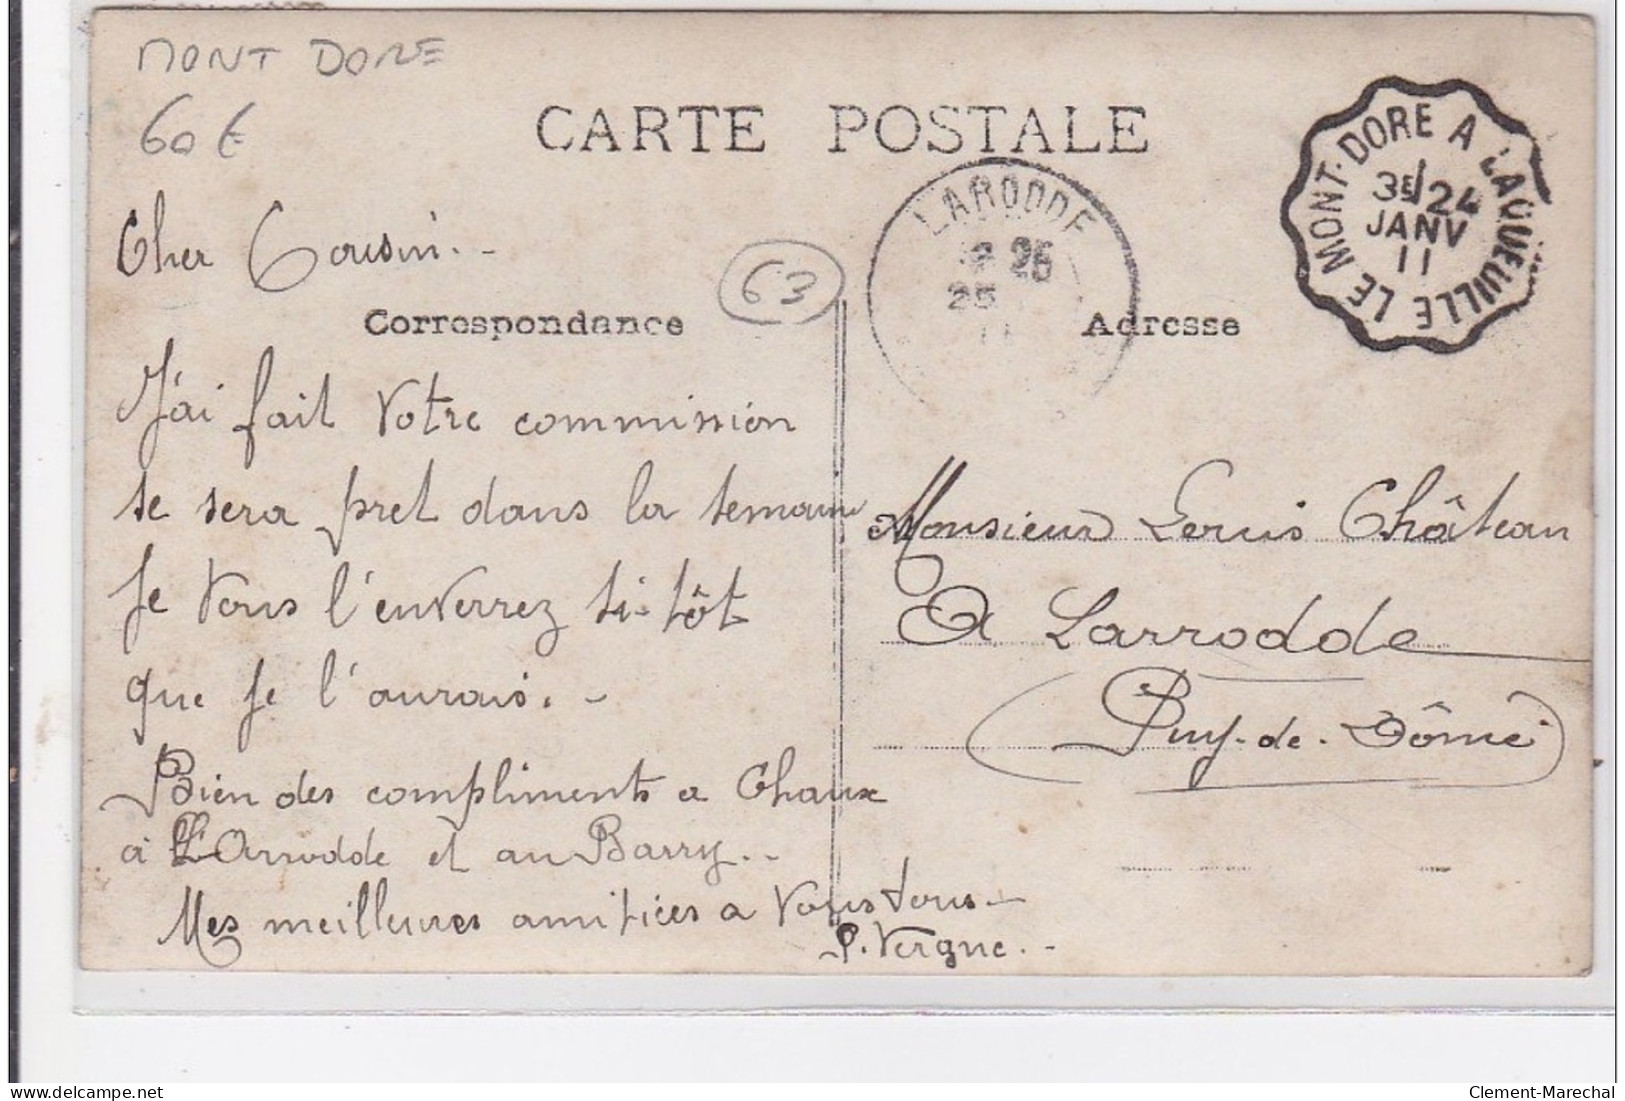 MONT DORE
60 €
CARTE POSTALE
LE MONT-DORE A LAQUEUILLE
3E/24
JANV
11
LARODDE
25
11
63
Cher Cousin. -
Correspondance
Adresse
J'ai fait votre commission
se sera pret dans la semaine
Je vous l'enverrez si-tôt
que je l'aurais. -
Bien des compliments a Chaux
à L'Arrodde et au Barry. .
Mes meilleures amitiées a vous tous -
P. Vergne. . -
Monsieur Louis Château
A Larrodde
(Puy-de-Dôme)
delcampe.net
Clement-Marechal